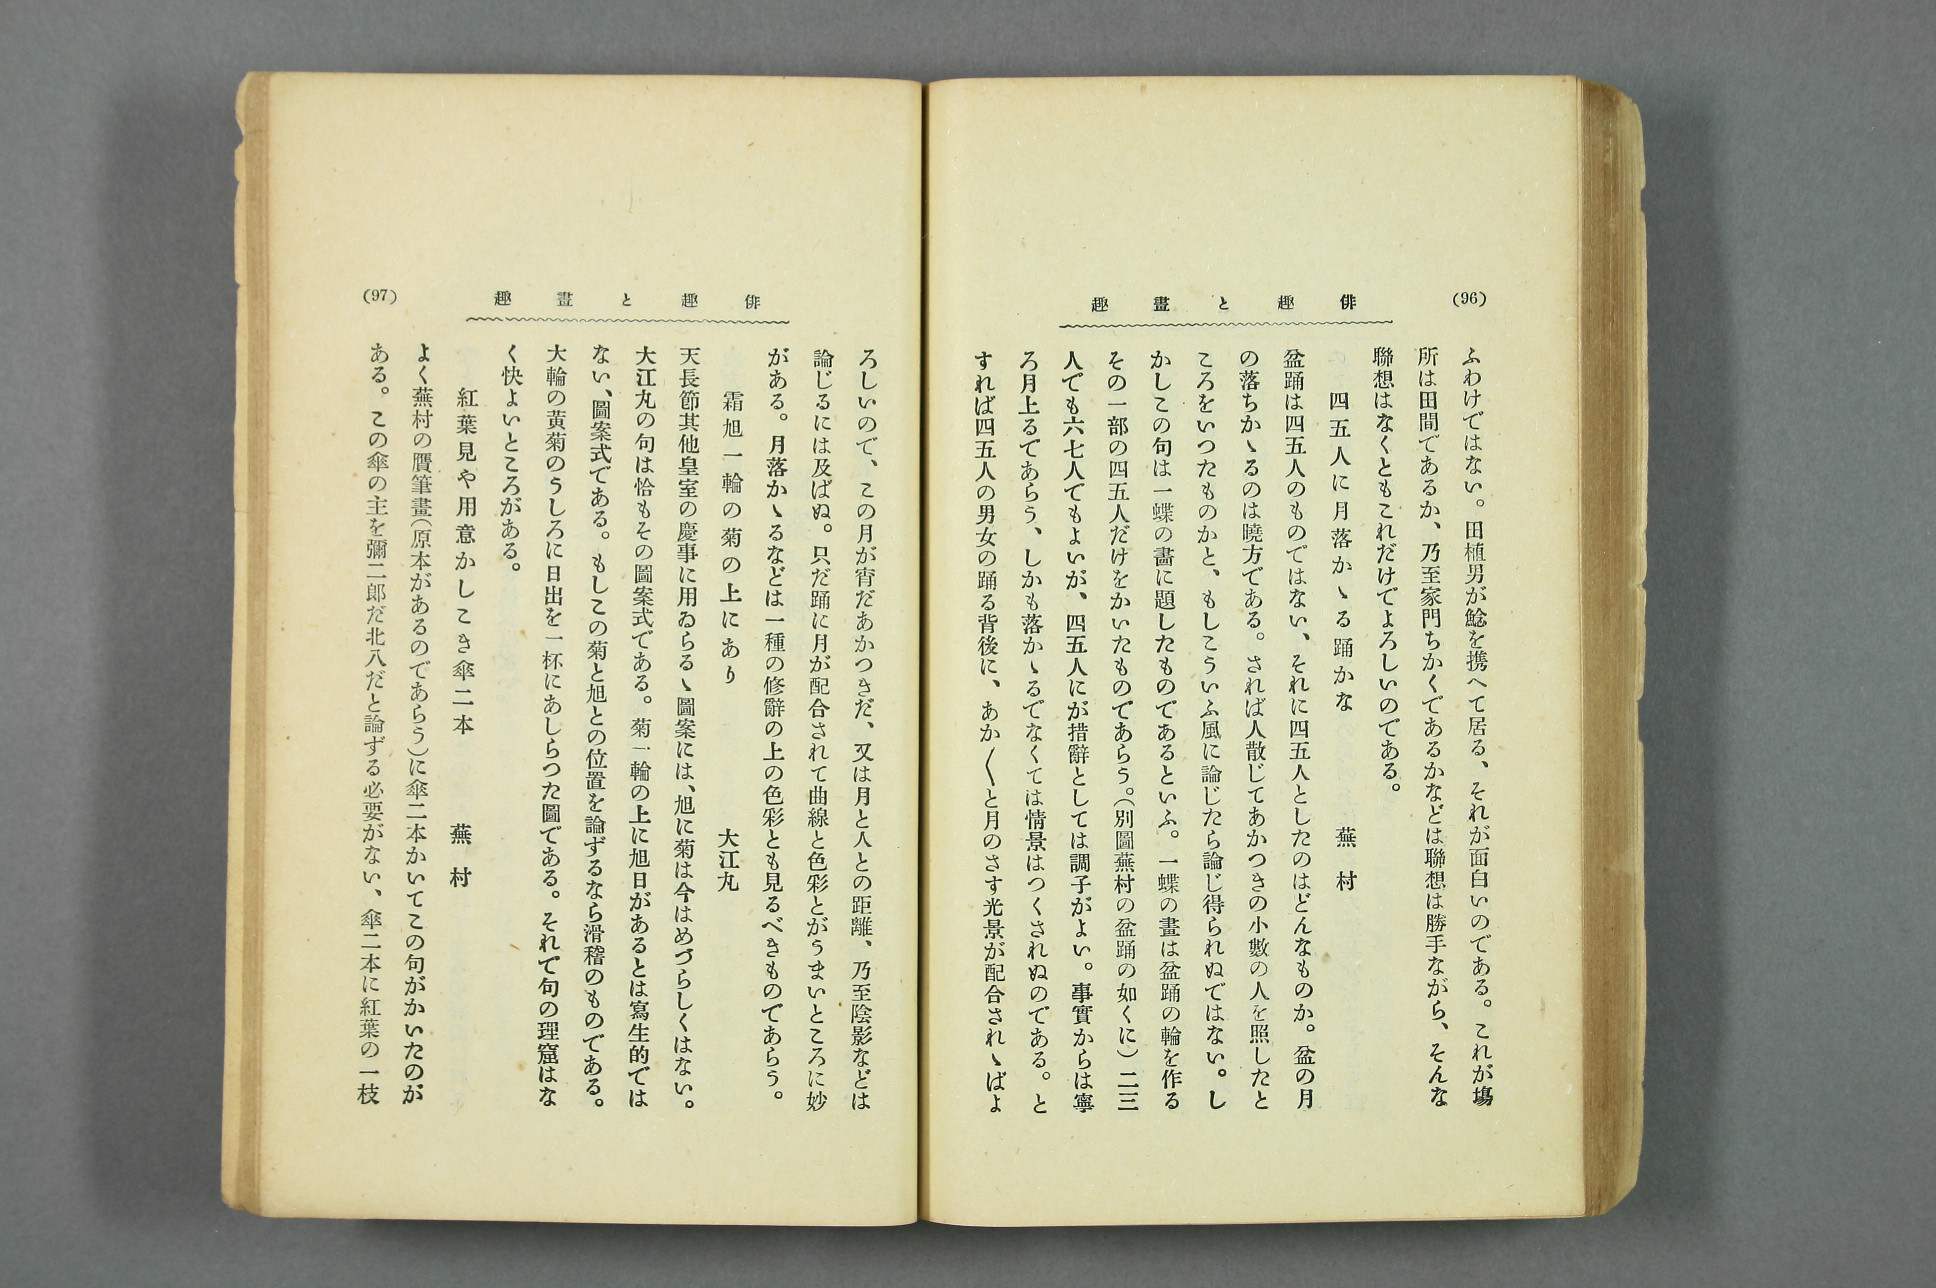 (96)
俳趣と畫趣
ふわけではない。田植男が鯰を携へて居る、それが面白いのである。これが塲
所は田間であるか、乃至家門ちかくであるかなどは聯想は勝手ながら、そんな
聯想はなくともこれだけでよろしいのである。
四五人に月落かゝる踊かな　蕪村
盆踊は四五人のものではない、それに四五人としたのはどんなものか。盆の月
の落ちかゝるのは曉方である。されば人散じてあかつきの小數の人を照したと
ころをいつたものかと、もしこういふ風に論じたら論じ得られぬではない。し
かしこの句は一蝶の畵に題したものであるといふ。一蝶の畫は盆踊の輪を作る
その一部の四五人だけをかいたものであらう。(別圖蕪村の盆踊の如くに)二三
人でも六七人でもよいが、四五人にが措辭としては調子がよい。事實からは寧
ろ月上るであらう、しかも落かゝるでなくては情景はつくされぬのである。と
すれば四五人の男女の踊る背後に、あか〱と月のさす光景が配合されゝばよ
俳趣と畫趣
(97)
ろしいので、この月が宵だあかつきだ、又は月と人との距離、乃至陰影などは
論じるには及ばぬ。只だ踊に月が配合されて曲線と色彩とがうまいところに妙
がある。月落かゝるなどは一種の修辭の上の色彩とも見るべきものであらう。
霜旭一輪の菊の上にあり　大江丸
天長節其他皇室の慶事に用ゐらるゝ圖案には、旭に菊は今はめづらしくはない。
大江丸の句は恰もその圖案式である。菊一輪の上に旭日があるとは寫生的では
ない、圖案式である。もしこの菊と旭との位置を論ずるなら滑稽のものである。
大輪の黄菊のうしろに日出を一杯にあしらつた圖である。それで句の理窟はな
く快よいところがある。
紅葉見や用意かしこき傘二本　蕪村
よく蕪村の贋筆畫(原本があるのであらう)に傘二本かいてこの句がかいたのが
ある。この傘の主を彌二郎だ北八だと論ずる必要がない、傘二本に紅葉の一枝